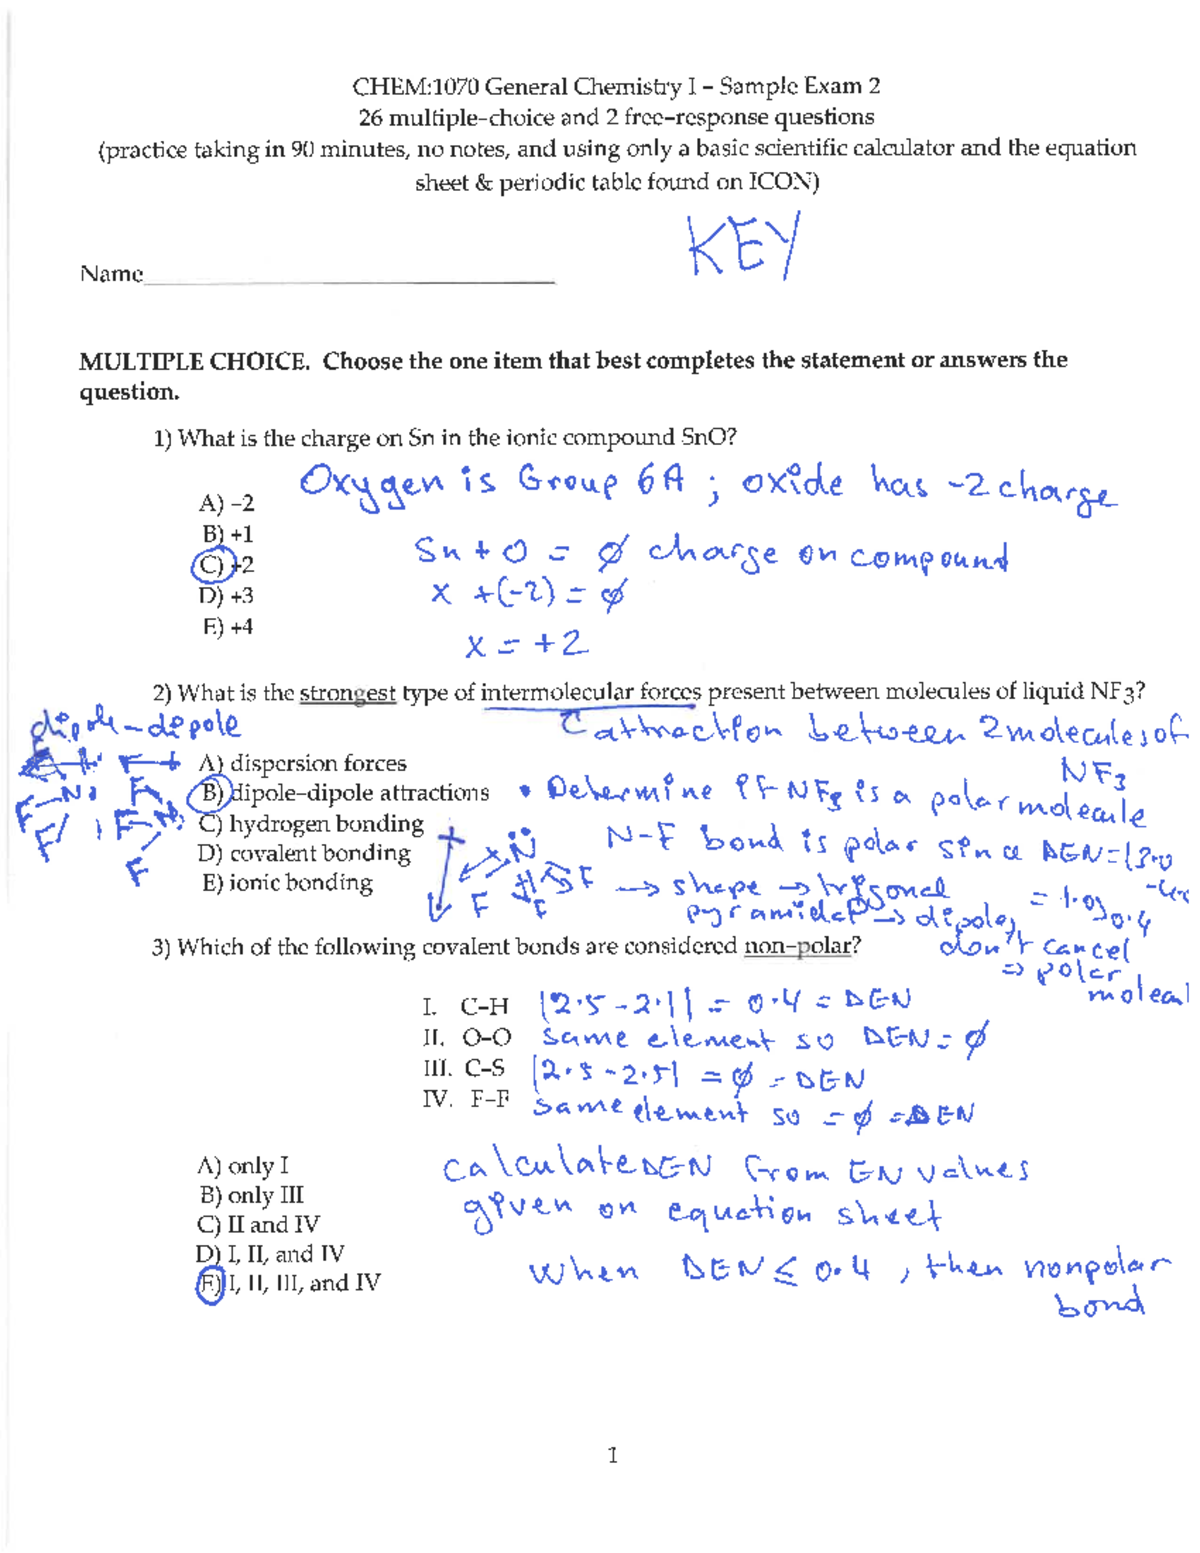 CHEM:1070 General Chemistry I – Sample Exam 2
26 multiple-choice and 2 free-response questions
(practice taking in 90 minutes, no notes, and using only a basic scientific calculator and the equation
sheet & periodic table found on ICON)
KEY
Name
MULTIPLE CHOICE. Choose the one item that best completes the statement or answers the
question.
1) What is the charge on Sn in the ionic compound SnO?
Oxygen is Group 6A ; oxide has -2 charge
A) –2
B) +1
Sn + O = ∅ charge on compound
C) +2
x + (-2) = ∅
D) +3
E) +4
x = +2
2) What is the strongest type of intermolecular forces present between molecules of liquid NF3?
dipole-dipole
attraction between 2 molecules of
NF3
A) dispersion forces
B) dipole–dipole attractions
• Determine if NF3 is a polar molecule
C) hydrogen bonding
N-F bond is polar since ΔEN=|3.0
D) covalent bonding
E) ionic bonding
N F F F
→ shape → trigonal
pyramidal → dipoles
= 1.0 > 0.4
don't cancel
⇒ polar
3) Which of the following covalent bonds are considered non–polar?
I. C–H |2.5 - 2.1| = 0.4 = ΔEN
II. O–O same element so ΔEN = ∅
III. C–S |2.5 - 2.5| = ∅ = ΔEN
IV. F–F same element so = ∅ = ΔEN
A) only I
B) only III
C) II and IV
D) I, II, and IV
E) I, II, III, and IV
calculate ΔEN from EN values
given on equation sheet
when ΔEN ≤ 0.4 , then nonpolar
bond
1